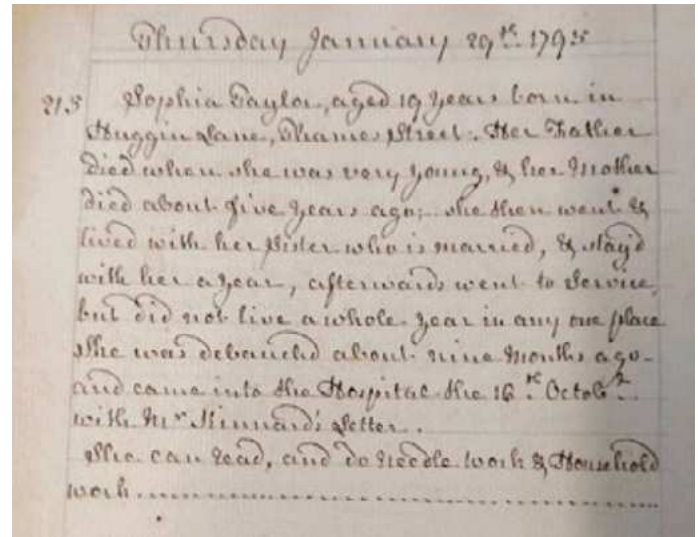 Thursday January 29th. 1795
215 Sophia Taylor, aged 19 Years born in
Huggin Lane, Thames Street. Her Father
died when she was very young, & her Mother
died about five Years ago; she then went &
lived with her Sister who is married, & stay'd
with her a Year, afterwards went to Service,
but did not live a whole Year in any one place
She was debauched about nine Months ago
and came into the Hospital the 16th. Octobr.
with Mr Letter.
She can read, and do needle work & Household
work